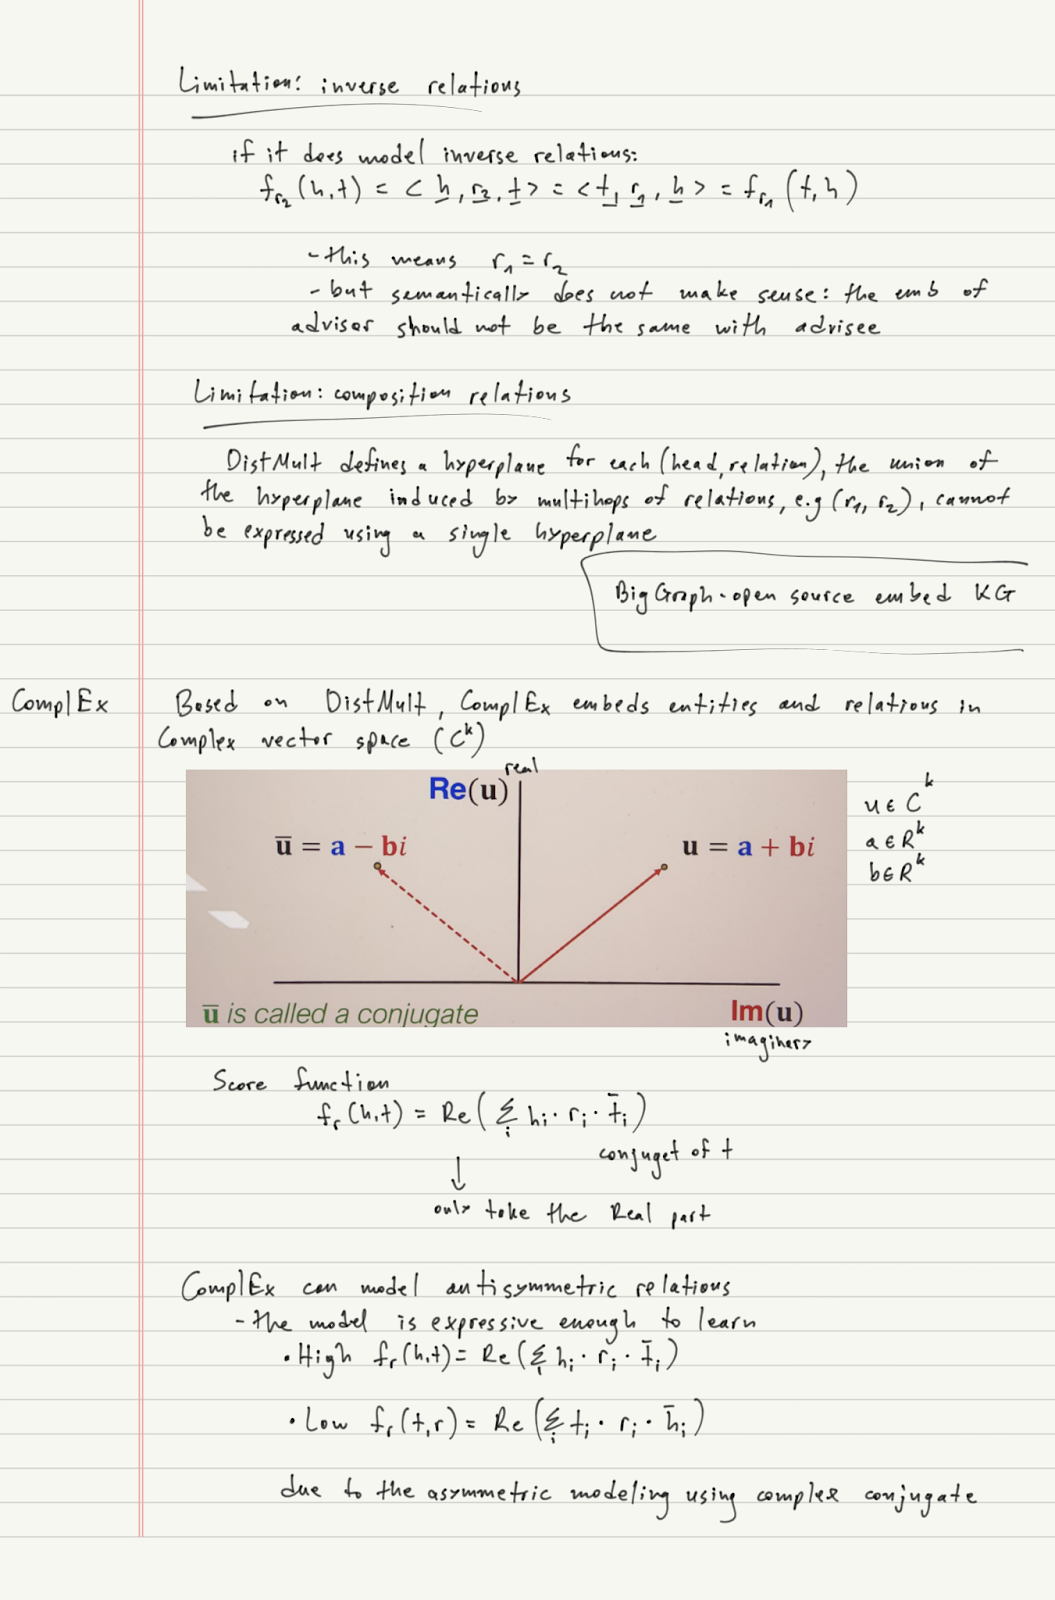 Limitation: inverse relations
if it does model inverse relations:
f_{r_2}(h,t) = <h, r_2, t> = <t, r_1, h> = f_{r_1}(t,h)
- this means r_1 = r_2
- but semantically does not make sense: the emb of
advisor should not be the same with advisee
Limitation: composition relations
DistMult defines a hyperplane for each (head, relation), the union of
the hyperplane induced by multihops of relations, e.g (r_1, r_2), cannot
be expressed using a single hyperplane
BigGraph - open source embed KG
ComplEx Based on DistMult, ComplEx embeds entities and relations in
Complex vector space (C^k)
real
Re(u)
u ∈ C^k
a ∈ R^k
b ∈ R^k
ū = a − bi
u = a + bi
ū is called a conjugate
Im(u)
imaginery
Score function
f_r(h,t) = Re(Σ_i h_i · r_i · t̄_i)
conjuget of t
↓
only take the Real part
ComplEx can model antisymmetric relations
- the model is expressive enough to learn
• High f_r(h,t) = Re(Σ_i h_i · r_i · t̄_i)
• Low f_r(t,r) = Re(Σ_i t_i · r_i · h̄_i)
due to the asymmetric modeling using complex conjugate